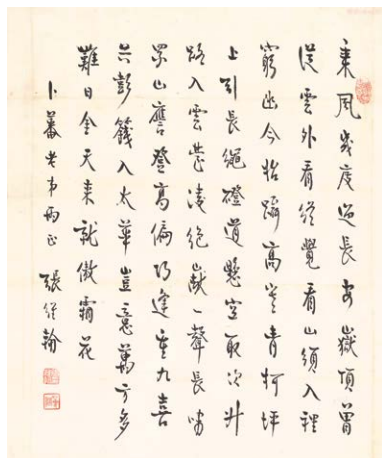 乘風幾度過長安嶽頂曾
從雲外看終覺看山須入裡
窮幽今始躡高寒青柯坪
上引長繩磴道懸空取次升
路入雲臺凌絕巘一聲長嘯
眾山譍登高偏巧逢重九喜
共彭籛入太華豈意萬方多
難日金天來就傲霜花
卜蕃老弟 正 張維翰